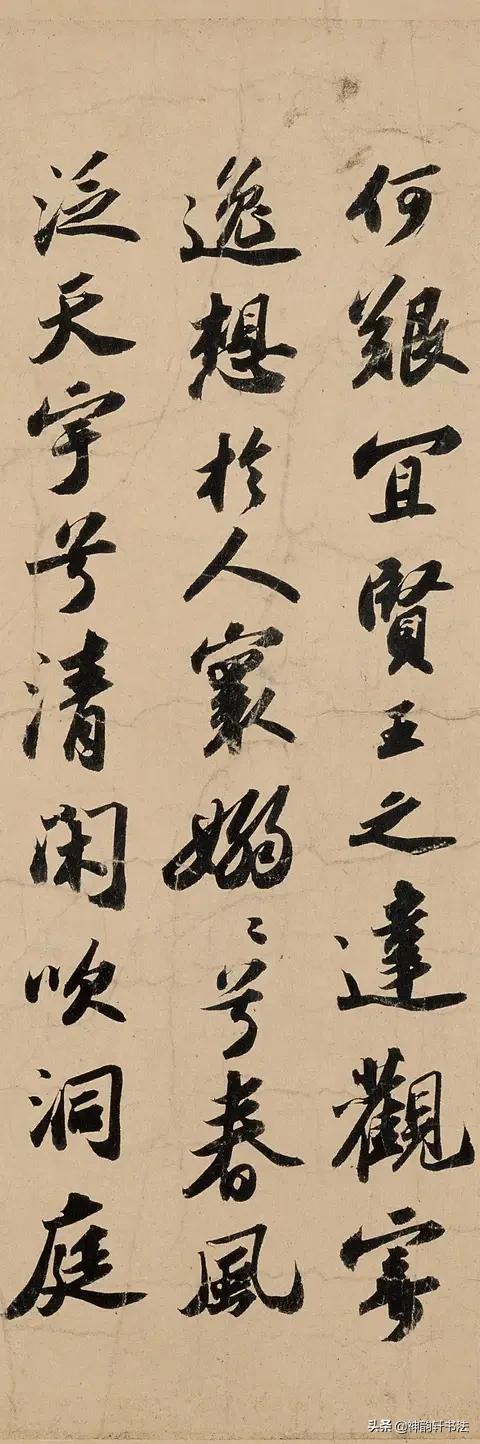 何艱宜賢王之達觀寄
逸想於人寰嫋〻兮春風
泛天宇兮清閑吹洞庭
头条 @神韵轩书法